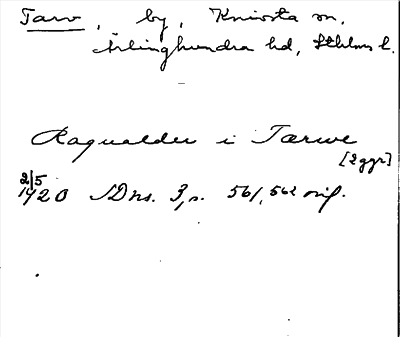 Tarv, by, Knivsta sn,
Ärlinghundra hd, Sthlms l.
Ragualder i Tærwe
[2 ggr]
2/5
1420 SDns. 3, s. 561, 562 orig.